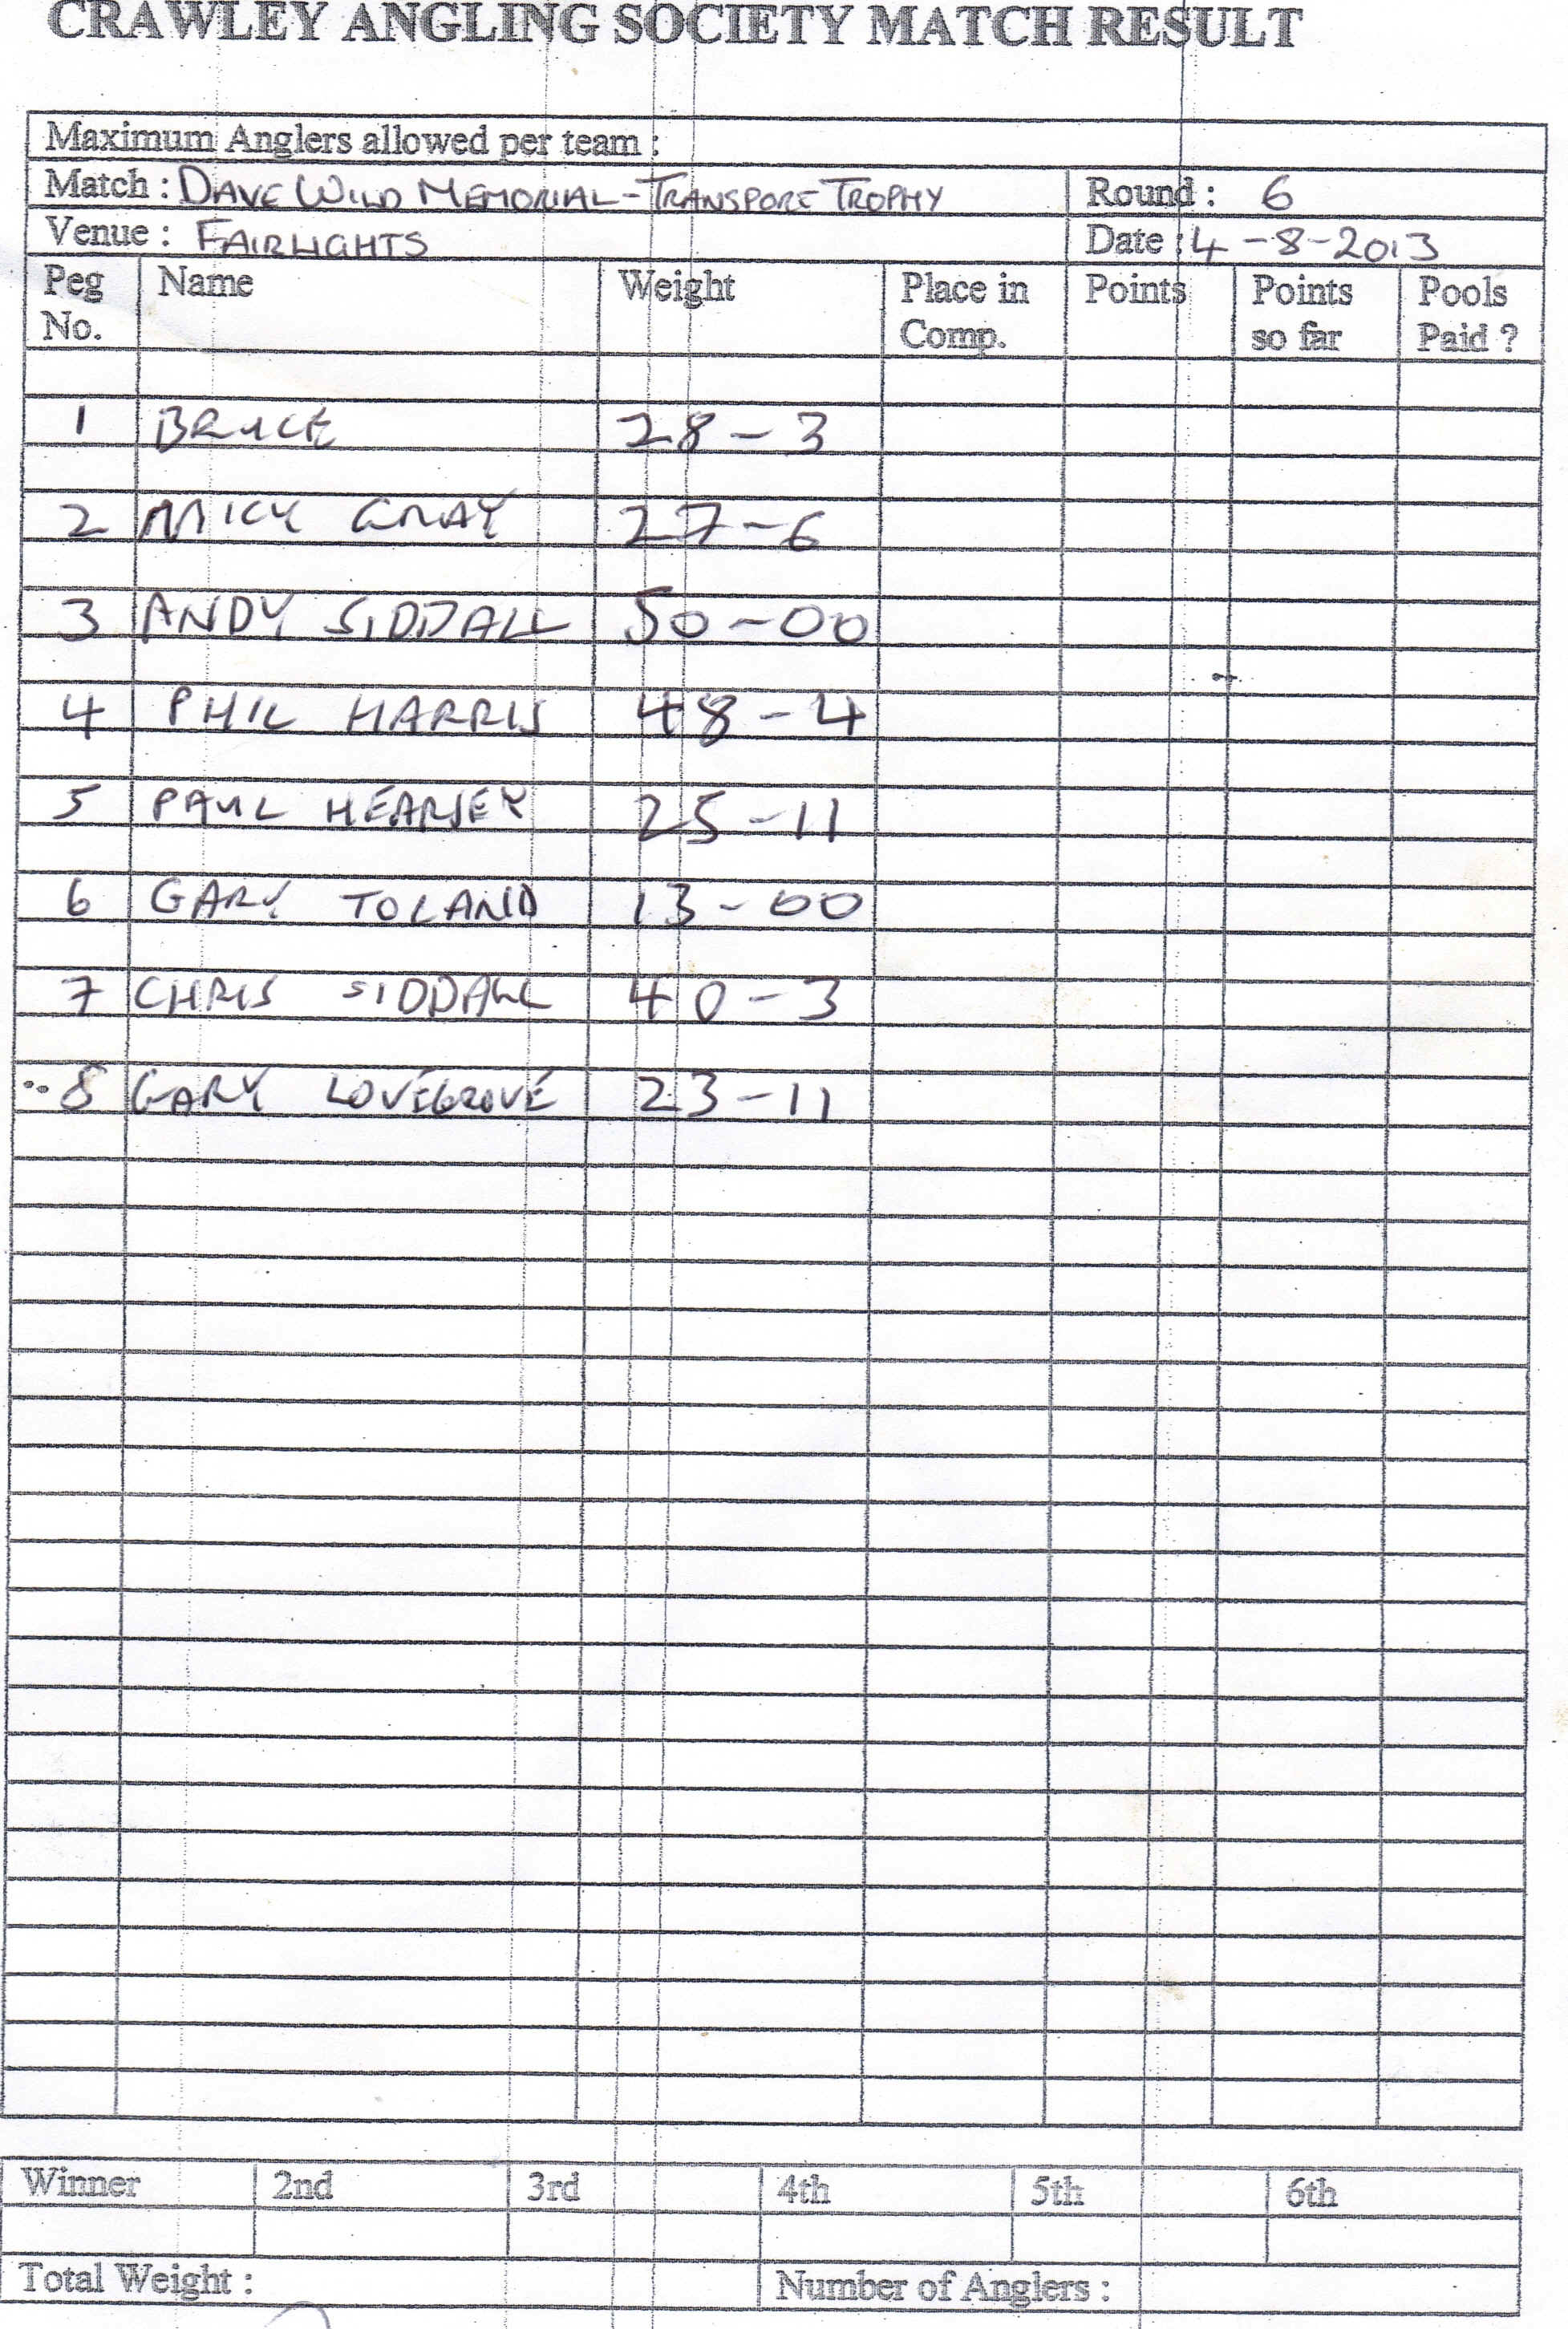 CRAWLEY ANGLING SOCIETY MATCH RESULT
Maximum Anglers allowed per team :
Match : DAVE WILD MEMORIAL - TRANSPORT TROPHY Round : 6
Venue : FAIRLIGHTS Date : 4-8-2013
Peg No. Name Weight Place in Comp. Points Points so far Pools Paid ?
1 BRUCE 28-3
2 MICK GRAY 27-6
3 ANDY SIDDALL 50-00
4 PHIL HARRIS 48-4
5 PAUL HEARSEY 25-11
6 GARY TOLAND 13-00
7 CHRIS SIDDALL 40-3
8 GARY LOVEGROVE 23-11
Winner 2nd 3rd 4th 5th 6th
Total Weight : Number of Anglers :